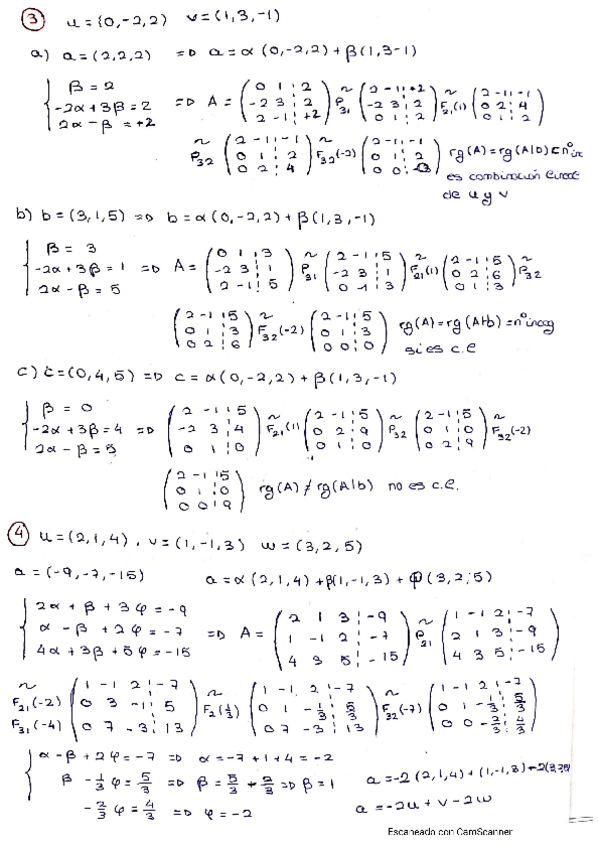 ③ u = {0,-2,2) v = (1,3,-1)
a) a = (2,2,2) => a = α (0,-2,2) + β(1,3-1)
{ β = 2
-2α + 3β = 2 => A = ( 0 1 ¦ 2 / -2 3 ¦ 2 / 2 -1 ¦ +2 ) ~ P31 ( 2 -1 ¦ +2 / -2 3 ¦ 2 / 0 1 ¦ 2 ) ~ F21(1) ( 2 -1 ¦ -1 / 0 2 ¦ 4 / 0 1 ¦ 2 )
2α - β = +2
~ P32 ( 2 -1 ¦ -1 / 0 1 ¦ 2 / 0 2 ¦ 4 ) ~ F32(-2) ( 2 -1 ¦ -1 / 0 1 ¦ 2 / 0 0 ¦ ) rg(A) = rg(A|b) = nº inc
es combinación lineal
de u y v
b) b = (3,1,5) => b = α(0,-2,2) + β(1,3,-1)
{ β = 3
-2α + 3β = 1 => A = ( 0 1 ¦ 3 / -2 3 ¦ 1 / 2 -1 ¦ 5 ) ~ P31 ( 2 -1 ¦ 5 / -2 3 ¦ 1 / 0 1 ¦ 3 ) ~ F21(1) ( 2 -1 ¦ 5 / 0 2 ¦ 6 / 0 1 ¦ 3 ) ~ P32
2α - β = 5
( 2 -1 ¦ 5 / 0 1 ¦ 3 / 0 2 ¦ 6 ) ~ F32(-2) ( 2 -1 ¦ 5 / 0 1 ¦ 3 / 0 0 ¦ 0 ) rg(A) = rg(A+b) = nº incog
si es c.e
c) c = (0,4,5) => c = α(0,-2,2) + β(1,3,-1)
{ β = 0
-2α + 3β = 4 => ( 2 -1 ¦ 5 / -2 3 ¦ 4 / 0 1 ¦ 0 ) ~ F21(1) ( 2 -1 ¦ 5 / 0 2 ¦ 9 / 0 1 ¦ 0 ) ~ P32 ( 2 -1 ¦ 5 / 0 1 ¦ 0 / 0 2 ¦ 9 ) ~ F32(-2)
2α - β = 5
( 2 -1 ¦ 5 / 0 1 ¦ 0 / 0 0 ¦ 9 ) rg(A) ≠ rg(A|b) no es c.e.
④ u = (2,1,4), v = (1,-1,3) w = (3,2,5)
a = (-9,-7,-15) a = α(2,1,4) + β(1,-1,3) + φ(3,2,5)
{ 2α + β + 3φ = -9
α - β + 2φ = -7 => A = ( 2 1 3 ¦ -9 / 1 -1 2 ¦ -7 / 4 3 5 ¦ -15 ) ~ P21 ( 1 -1 2 ¦ -7 / 2 1 3 ¦ -9 / 4 3 5 ¦ -15 )
4α + 3β + 5φ = -15
~ F21(-2) F31(-4) ( 1 -1 2 ¦ -7 / 0 3 -1 ¦ 5 / 0 7 -3 ¦ 13 ) ~ F2(1/3) ( 1 -1 2 ¦ -7 / 0 1 -1/3 ¦ 5/3 / 0 7 -3 ¦ 13 ) ~ F32(-7) ( 1 -1 2 ¦ -7 / 0 1 -1/3 ¦ 5/3 / 0 0 -2/3 ¦ 4/3 )
{ α - β + 2φ = -7 => α = -7 + 1 + 4 = -2
β - 1/3 φ = 5/3 => β = 5/3 + 2/3 => β = 1 a = -2(2,1,4) + (1,-1,3) - 2(3,2,5)
-2/3 φ = 4/3 => φ = -2 a = -2u + v - 2w
Escaneado con CamScanner